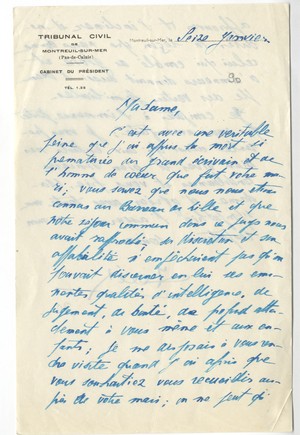 TRIBUNAL CIVIL
DE
MONTREUIL-SUR-MER
(Pas-de-Calais)
CABINET DU PRÉSIDENT
TÉL. 1.34
Montreuil-sur-Mer, le Seize Janvier
30
Madame,
C'est avec une véritable
peine que j'ai appris la mort si
prématurée du grand écrivain et de
l'homme de cœur que fut votre ma
ri, vous savez que nous nous étions
connus au Bureau de ville et que
notre séjour commun dans ce pays nous
avait rapprochés. Sa discrétion et son
affabilité n'empêchaient pas qu'on
pouvait discerner en lui ses émi
nentes qualités d'intelligence, de
jugement, de bonté, du profond atta
chement à vous même et aux en
fants; je me disposais à vous ren
dre visite quand j'ai appris que
vous souhaitiez vous recueillir au
près de votre mari; on ne peut qu